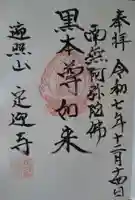 奉拝
令和七年十二月十四日
南無阿弥陀佛
黒本尊如来
遍照山
定迎寺